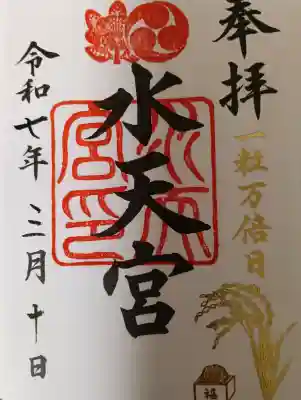 奉拝
一粒万倍日
福
水天宮
水天宮印
令和七年 三月 十日